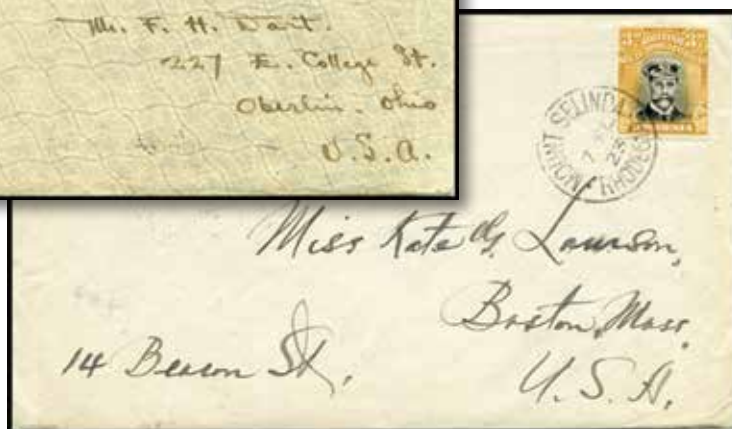 Mr. F. H. Dart.
227 E. College St.
Oberlin. Ohio
U.S.A.
MOUNT SELINDA
23
Miss Kate G. Lamson,
Boston, Mass.
14 Beacon St.,
U. S. A.